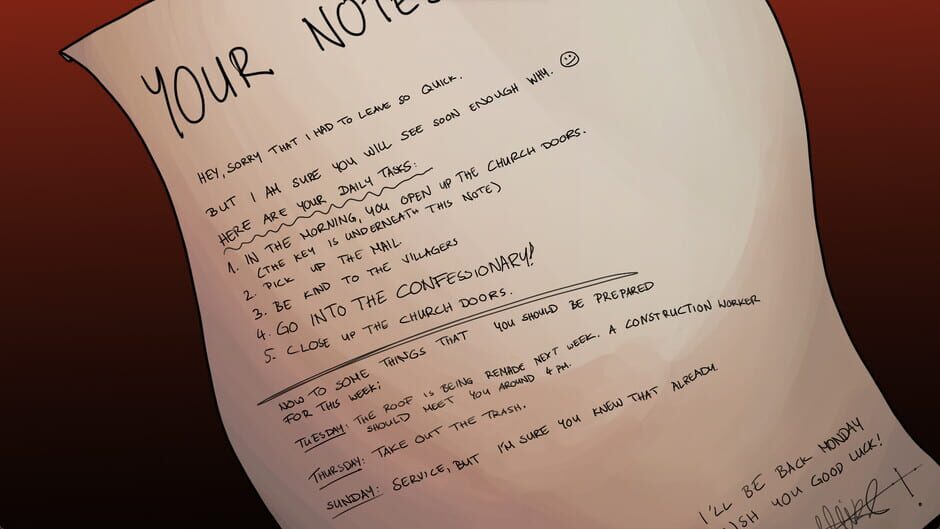 YOUR NOTES
HEY, SORRY THAT I HAD TO LEAVE SO QUICK.
BUT I AM SURE YOU WILL SEE SOON ENOUGH WHY. ☺
HERE ARE YOUR DAILY TASKS:
1. IN THE MORNING, YOU OPEN UP THE CHURCH DOORS.
(THE KEY IS UNDERNEATH THIS NOTE)
2. PICK UP THE MAIL
3. BE KIND TO THE VILLAGERS
4. GO INTO THE CONFESSIONARY!
5. CLOSE UP THE CHURCH DOORS.
NOW TO SOME THINGS THAT YOU SHOULD BE PREPARED
FOR THIS WEEK:
TUESDAY: THE ROOF IS BEING REMADE NEXT WEEK. A CONSTRUCTION WORKER
SHOULD MEET YOU AROUND 4 PM.
THURSDAY: TAKE OUT THE TRASH.
SUNDAY: SERVICE, BUT I'M SURE YOU KNEW THAT ALREADY.
I'LL BE BACK MONDAY
WISH YOU GOOD LUCK!